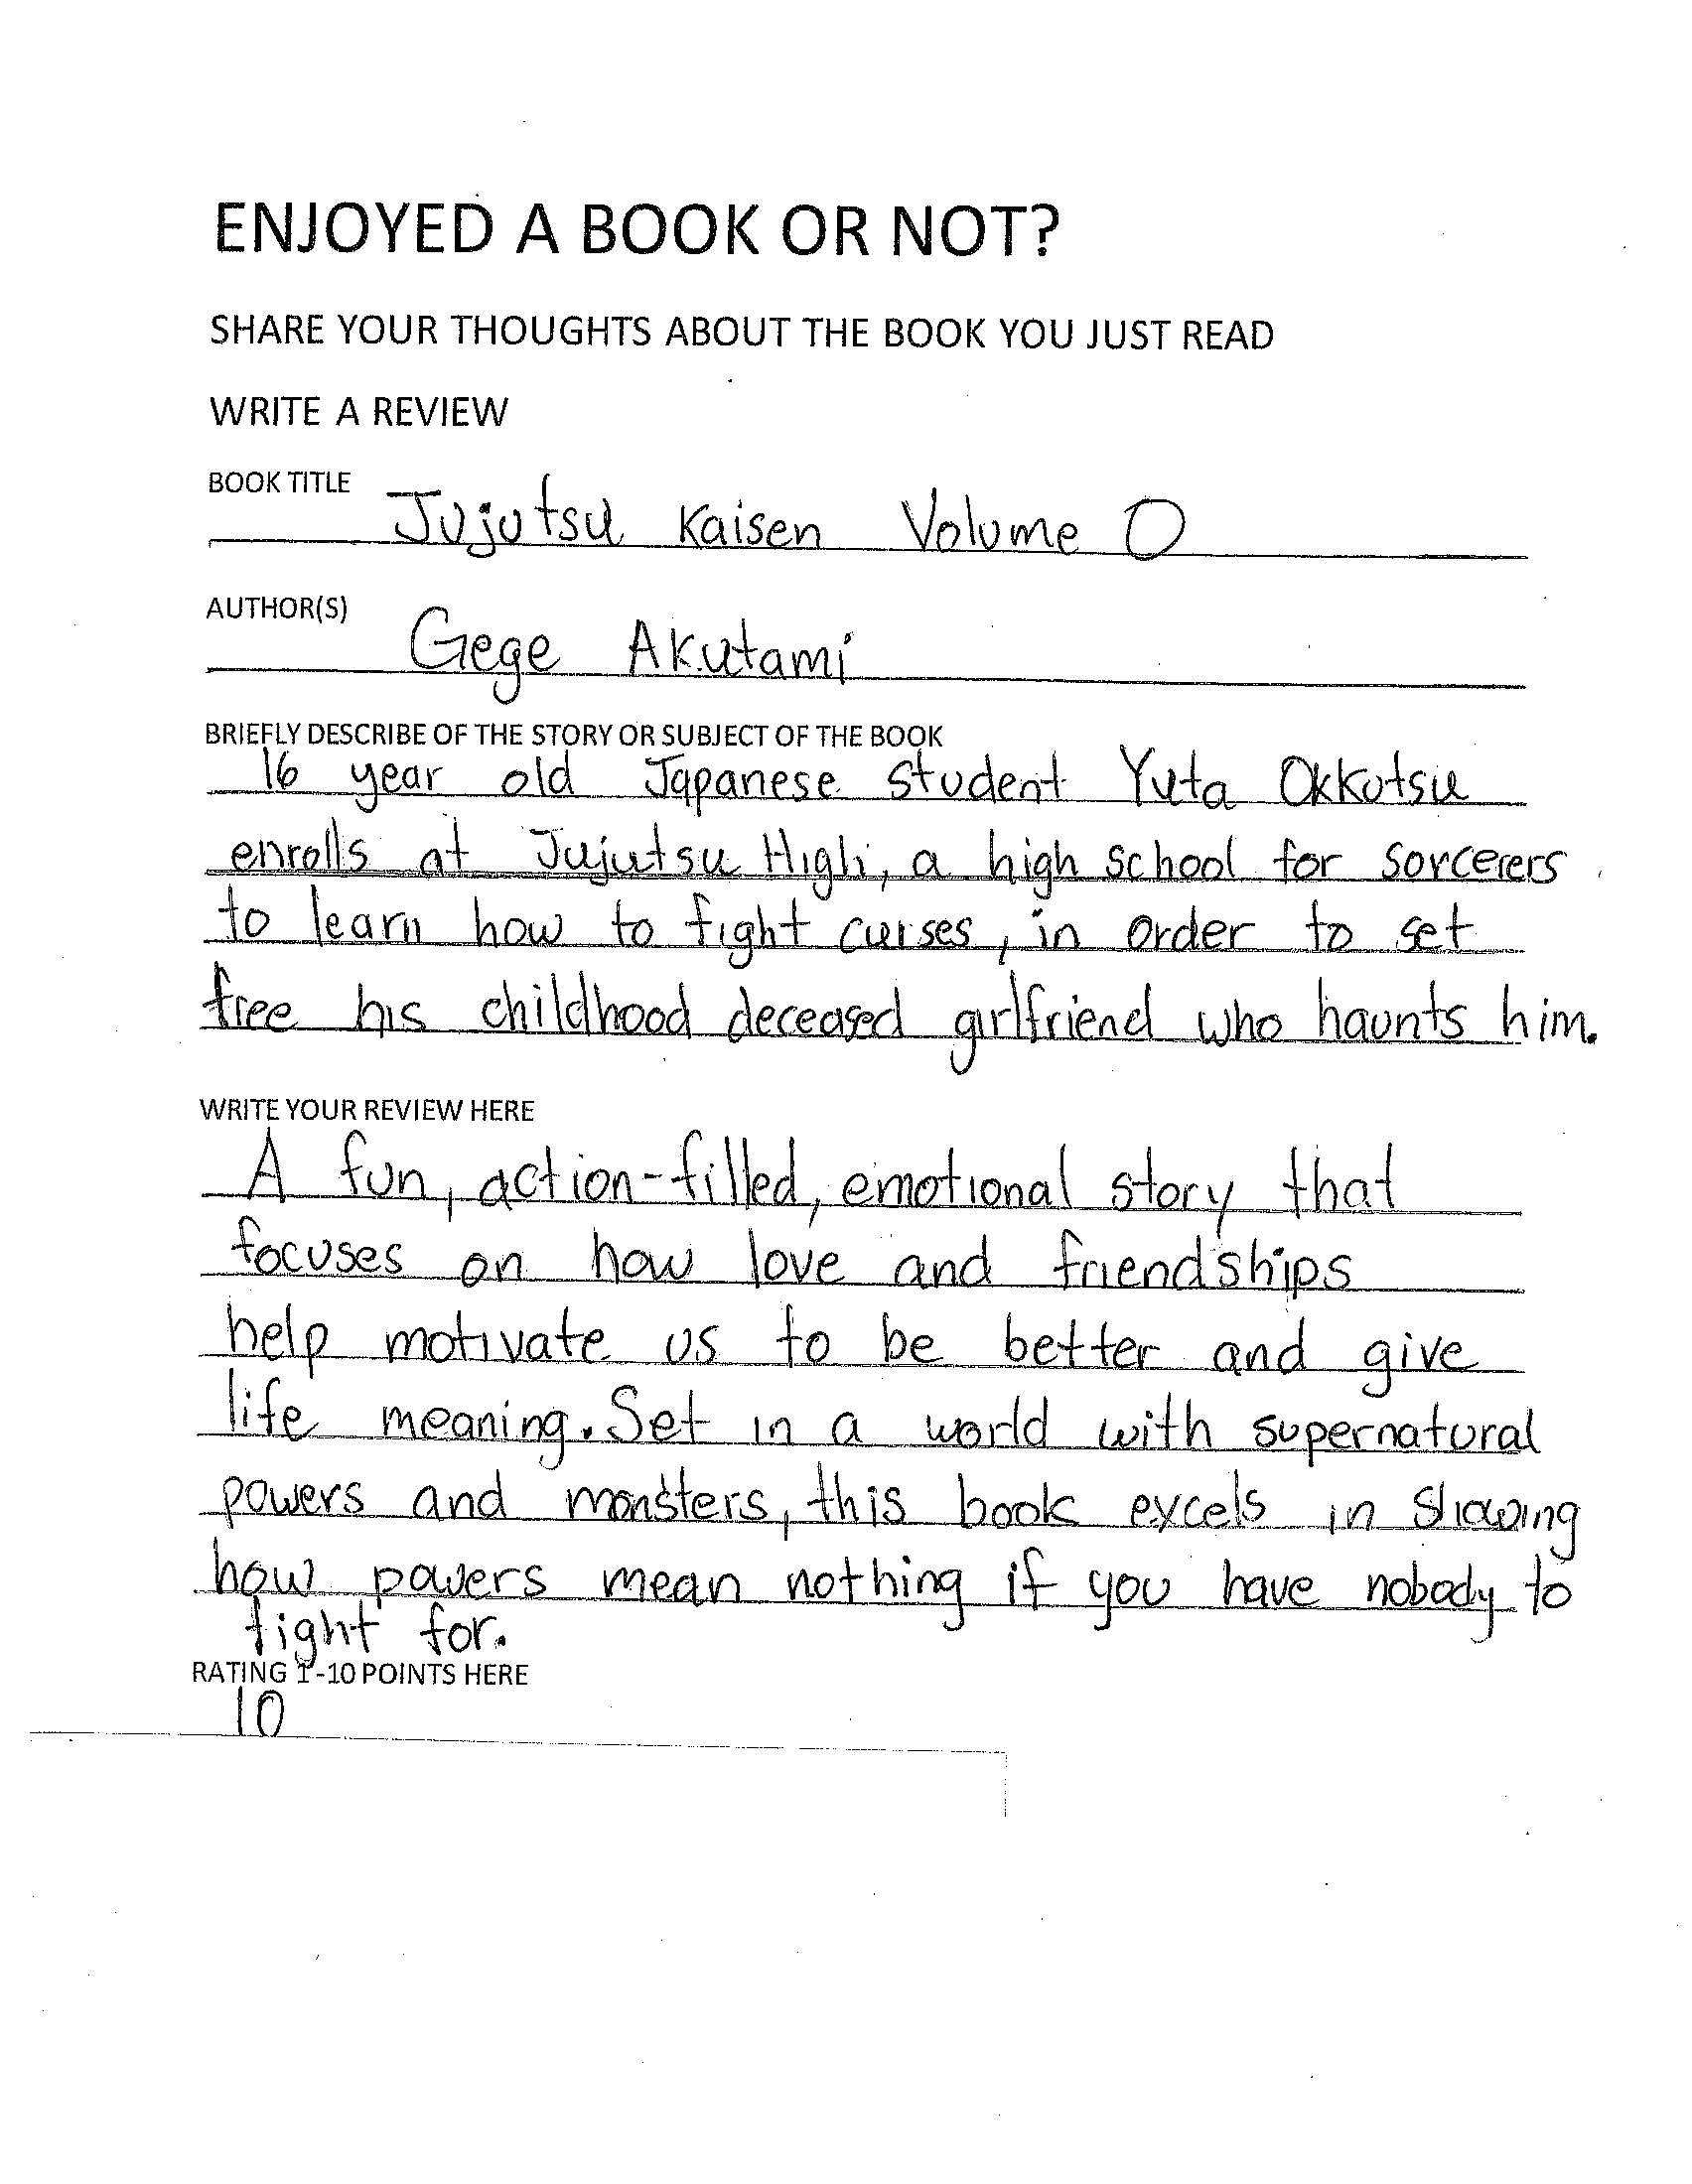 ENJOYED A BOOK OR NOT?
SHARE YOUR THOUGHTS ABOUT THE BOOK YOU JUST READ
WRITE A REVIEW
BOOK TITLE
Jujutsu Kaisen Volume 0
AUTHOR(S)
Gege Akutami
BRIEFLY DESCRIBE OF THE STORY OR SUBJECT OF THE BOOK
16 year old Japanese student Yuta Okkotsu
enrolls at Jujutsu High, a high school for sorcerers
to learn how to fight curses, in order to set
free his childhood deceased girlfriend who haunts him.
WRITE YOUR REVIEW HERE
A fun, action-filled, emotional story that
focuses on how love and friendships
help motivate us to be better and give
life meaning. Set in a world with supernatural
powers and monsters, this book excels in showing
how powers mean nothing if you have nobody to
fight for.
RATING 1-10 POINTS HERE
10